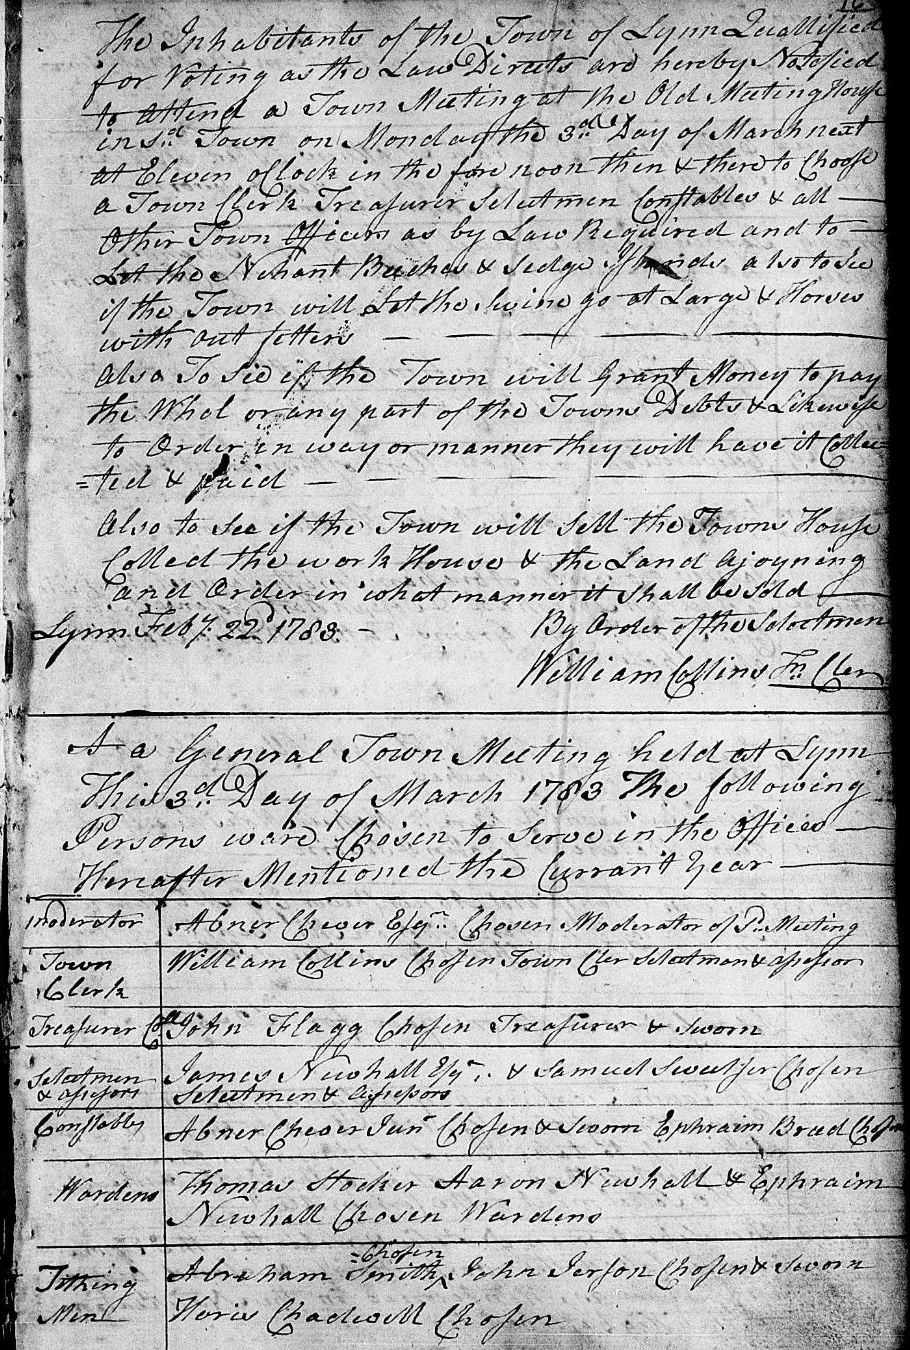 The Inhabitants of the Town of Lynn Quallified
for Voting as the Law Directs are hereby Notefied
to attend a Town Meeting at the Old Meeting House
in sd. Town on Monday the 3d Day of March next
at Eleven oClock in the fore noon then & there to Choose
a Town Clerk Treasurer Selectmen Constables & all
Other Town Officers as by Law Required and to
Let the Nehant Beeches & Sedge also to See
if the Town will Let the Swine go at Large & Horses
with out fetters
Also To See if the Town will Grant Money to pay
the Whol or any part of the Towns Debts & Likewise
to Order in way or manner they will have it Collec
=ted & paid
Also to see if the Town will Sell the Towns House
Colled the work House & the Land Ajoyning
and Order in what manner it shall be sold
Lynn Feby. 22d 1783
By Order of the Selectmen
William Collins Tn Cler
At a General Town Meeting held at Lynn
This 3d. Day of March 1783 The following
Persons ware Chosen to Serve in the Offices
Hereafter Mentioned the Currant Year
moderator Abner Chever Esqr. Chosen Moderator of Sd. Meeting
Town William Collins Chosen Town Cler Selectman & assessor
Clerk
Treasurer John Flagg Chosen Treasurer & Sworn
Selectmen James Newhall Esqr. & Samuel Sweetser Chosen
& assessors Selectmen & Assessors
Constables Abner Chever Junr Chosen & Sworn Ephraim Breed Chosen
Wardens Thomas Stocker Aaron Newhall & Ephraim
Newhall Chosen Wardens
=Chosen
Tithing Abraham Smith John Jerson Chosen & Sworn
Men Haris Chadwell Chosen